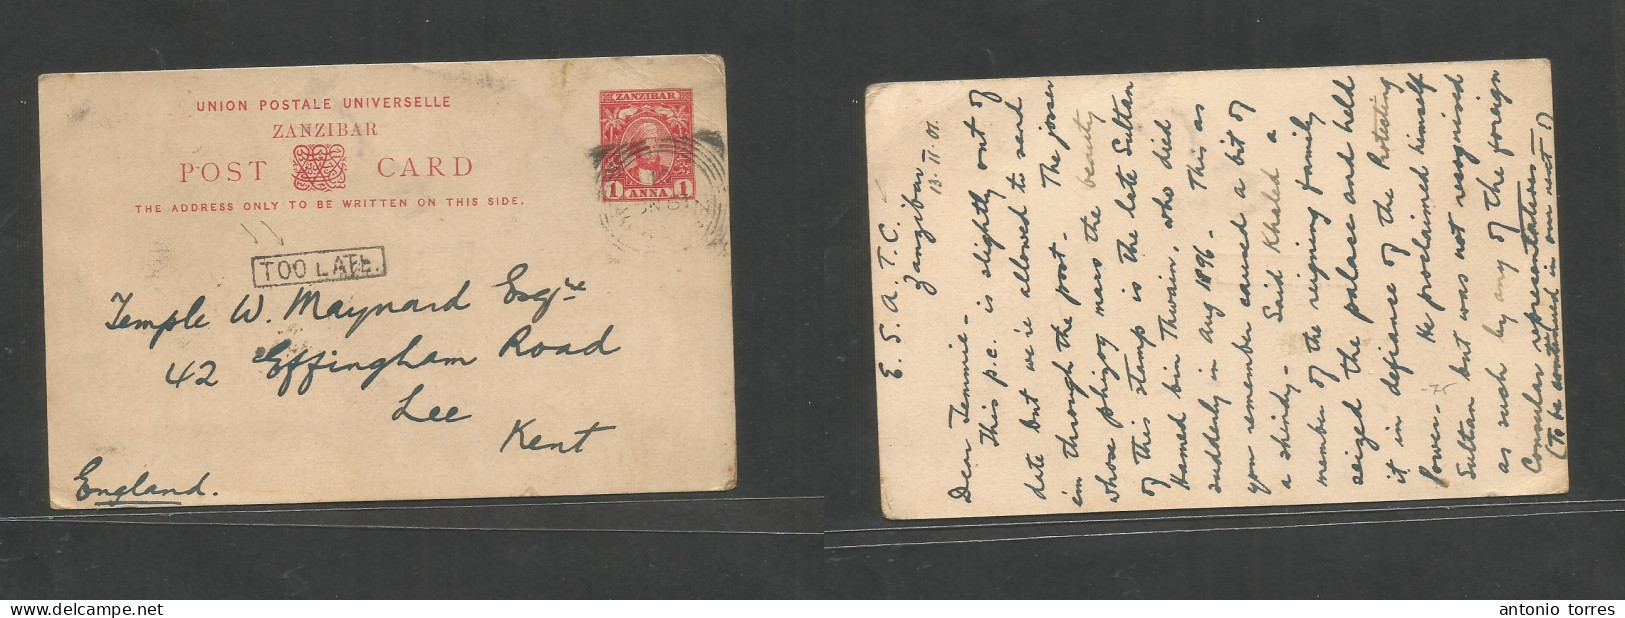 UNION POSTALE UNIVERSELLE
ZANZIBAR
POST CARD
THE ADDRESS ONLY TO BE WRITTEN ON THIS SIDE.
ZANZIBAR
1 ANNA 1
TOO LATE.
Temple W. Maynard Esqre
42 Effingham Road
Lee
Kent
England.
E. S. A. T. C.
Zanzibar
13.11.01.
Dear Temmie -
This p.c. is slightly out of
date but we're allowed to send
in through the post - The josser
whose phizog mars the beauty
of this stamp is the late Sultan
Hamed bin Thwain, who died
suddenly in Aug 1896 - This as
you remember caused a bit of
a shindy - Said Khaled a
member of the reigning family
seized the palace and held
it in defiance of the Protecting
Power - He proclaimed himself
Sultan but was not recognised
as such by any of the foreign
Consular representatives
(To be continued in our next)
antonio torres